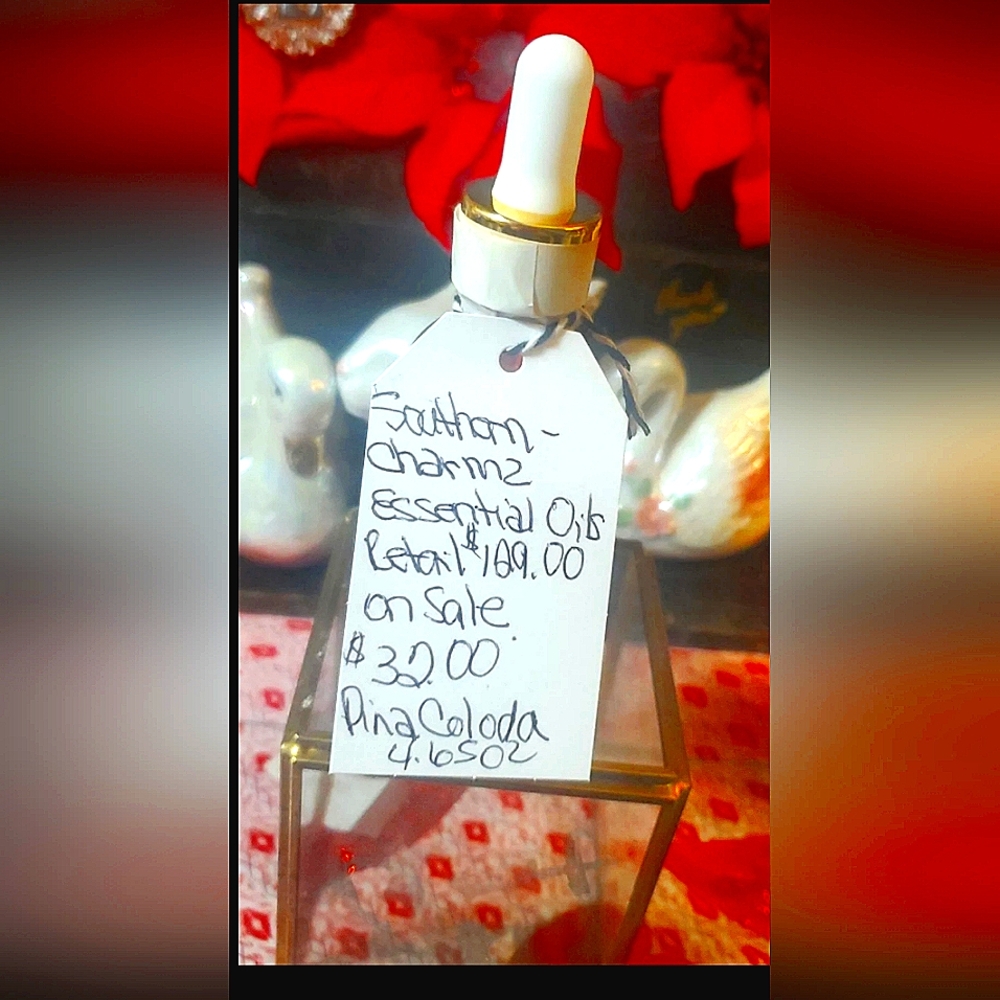 Southorn -
Charmz
Essential Oils
Retail $169.00
on Sale
$32.00
Pina Coloda
4.65oz